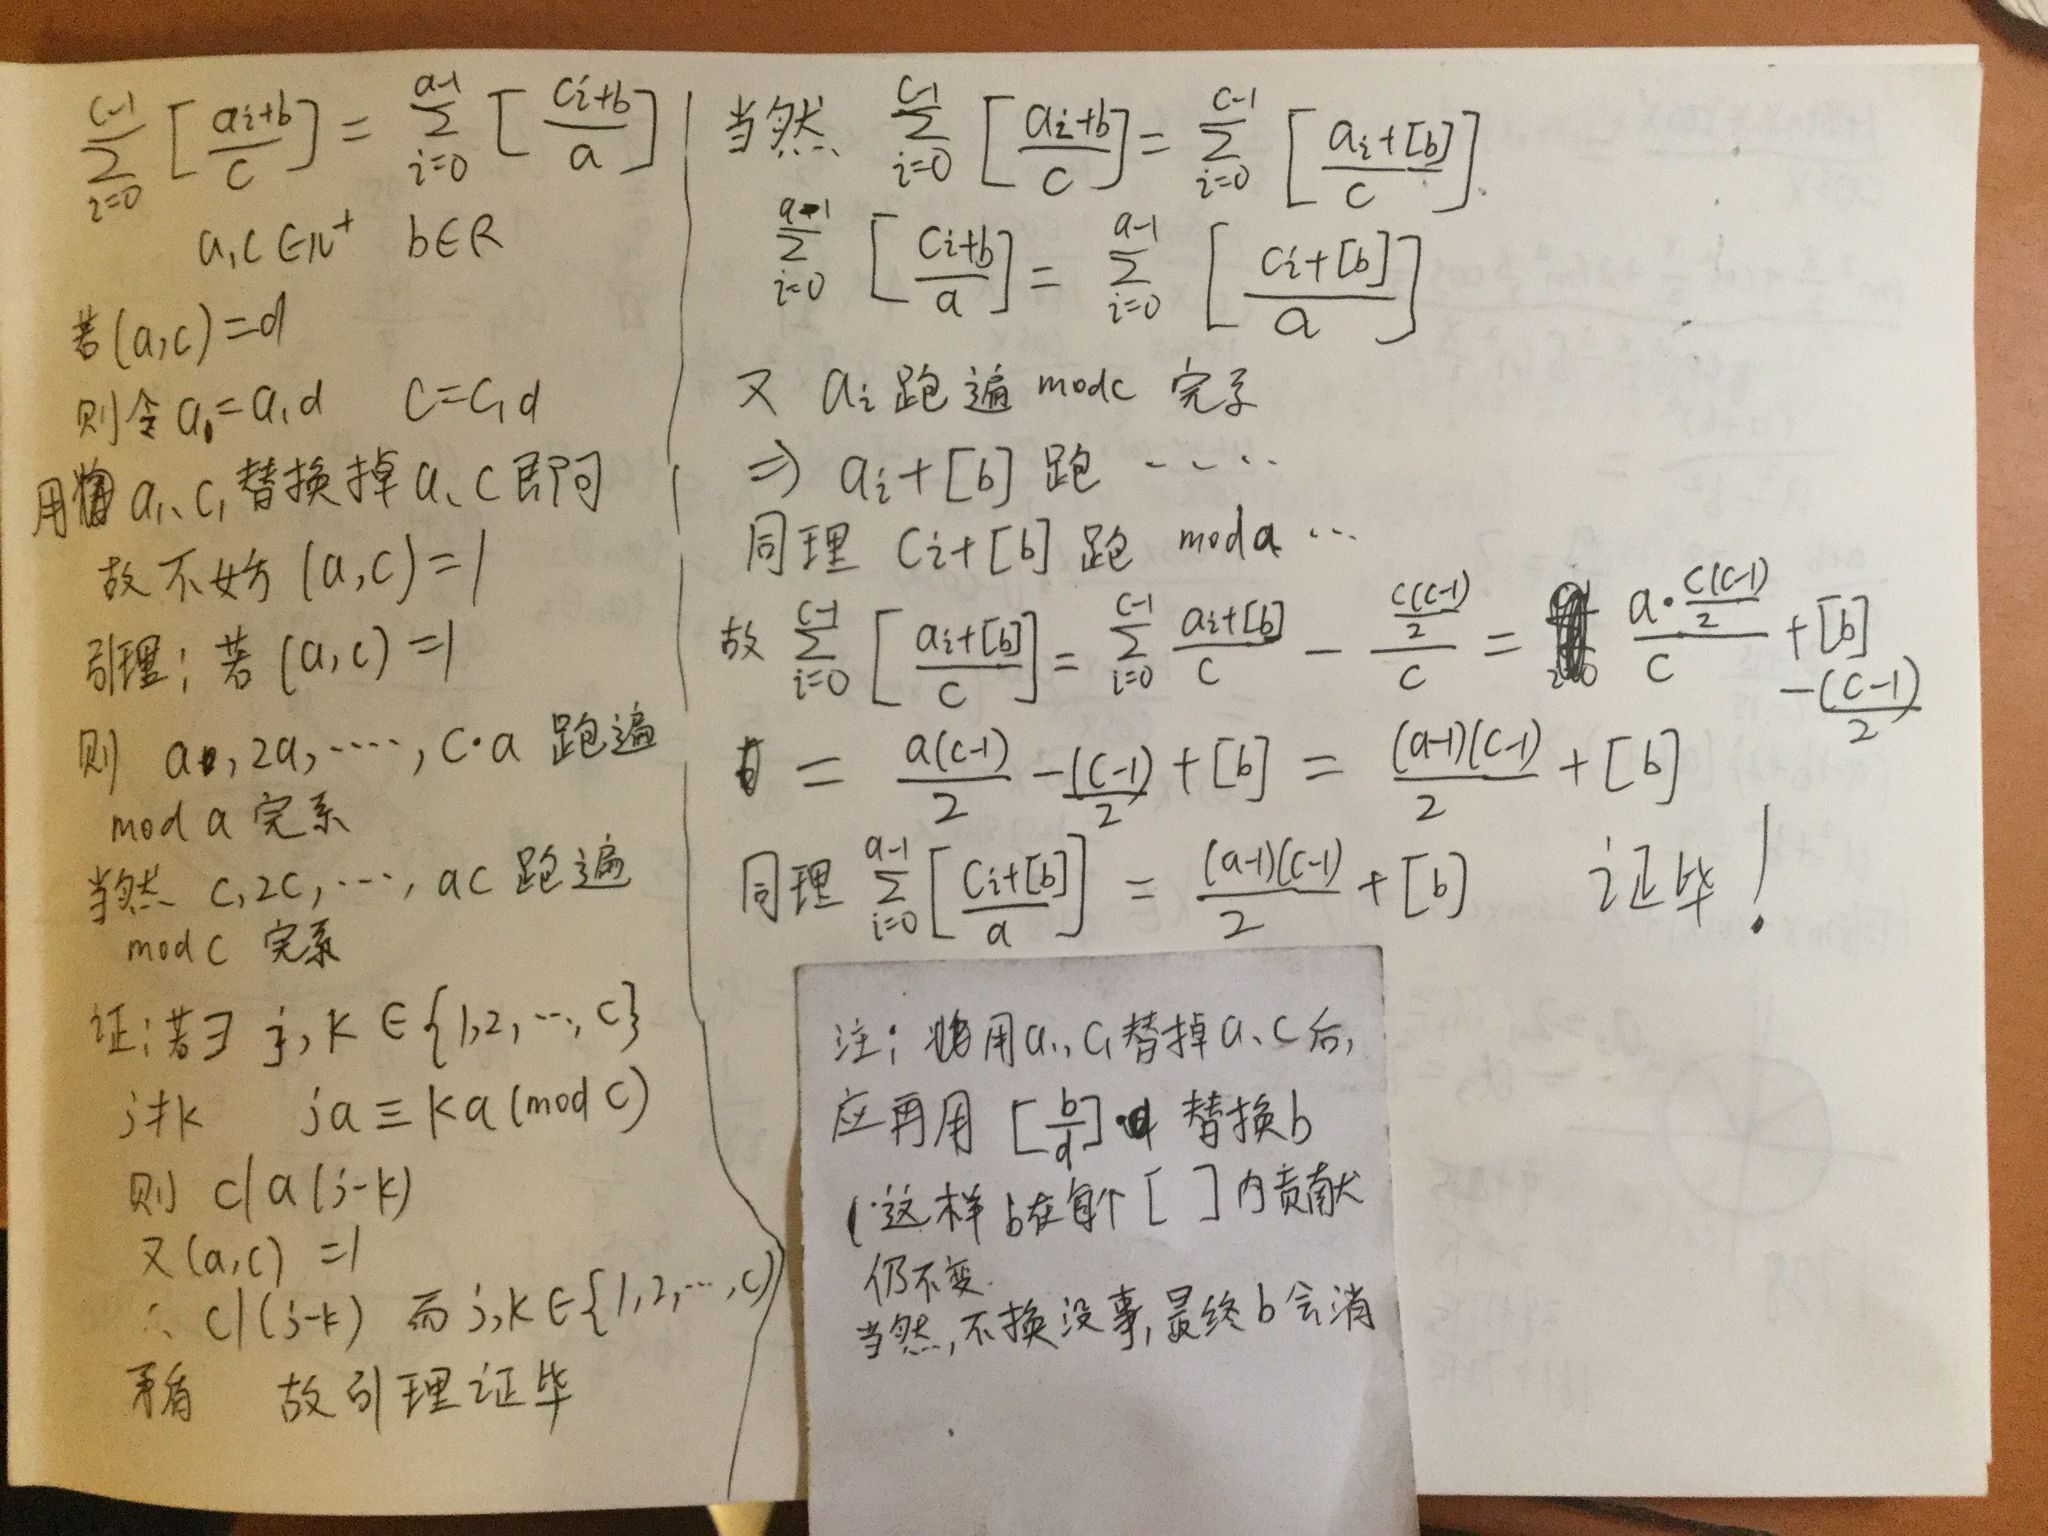 \sum_{i=0}^{c-1} [\frac{ai+b}{c}] = \sum_{i=0}^{a-1} [\frac{ci+b}{a}]
a,c∈N⁺ b∈R
若(a,c)=d
则令a=a₁d c=c₁d
用a₁、c₁替换掉a、c即可
故不妨(a,c)=1
引理:若(a,c)=1
则 a,2a,····,c·a 跑遍
mod a 完系
当然 c,2c,···,ac 跑遍
mod c 完系
证:若∃ j,k∈{1,2,···,c}
j≠k ja≡ka(mod c)
则 c|a(j-k)
又(a,c)=1
∴ c|(j-k) 而j,k∈{1,2,···,c}
矛盾 故引理证毕
当然 \sum_{i=0}^{c-1} [\frac{ai+b}{c}] = \sum_{i=0}^{c-1} [\frac{ai+[b]}{c}]
\sum_{i=0}^{a-1} [\frac{ci+b}{a}] = \sum_{i=0}^{a-1} [\frac{ci+[b]}{a}]
又 ai跑遍 modc 完系
⇒ ai+[b] 跑 ····
同理 ci+[b] 跑 moda ···
故 \sum_{i=0}^{c-1} [\frac{ai+[b]}{c}] = \sum_{i=0}^{c-1} \frac{ai+[b]}{c} - \frac{\frac{c(c-1)}{2}}{c} = \frac{a·\frac{c(c-1)}{2}}{c} + [b] - \frac{(c-1)}{2}
= \frac{a(c-1)}{2} - \frac{(c-1)}{2} + [b] = \frac{(a-1)(c-1)}{2} + [b]
同理 \sum_{i=0}^{a-1} [\frac{ci+[b]}{a}] = \frac{(a-1)(c-1)}{2} + [b] 证毕!
注:用a₁,c₁替掉a、c后,
应再用 [\frac{b}{d}] 替换b
(这样b在每个[ ]内贡献
仍不变.
当然,不换没事,最终b会消